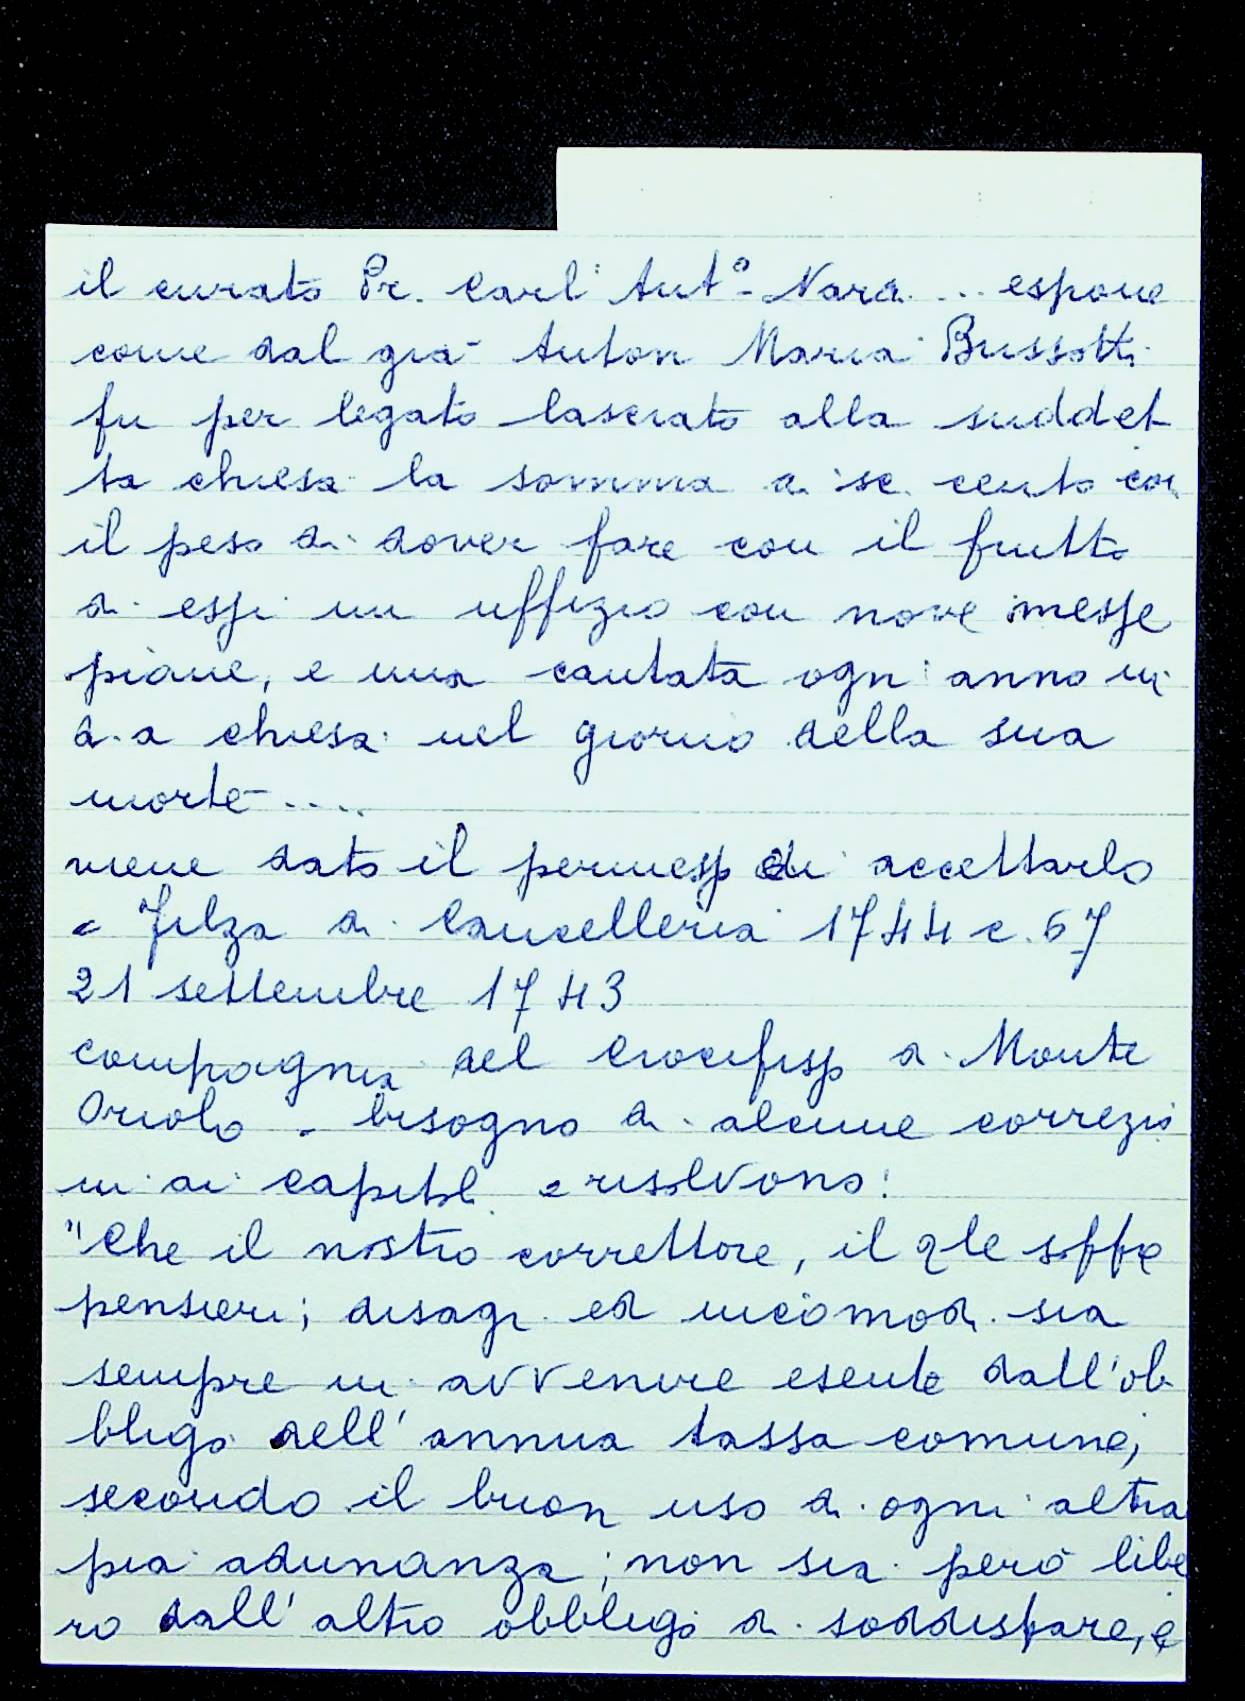 il curato Pr. Carl' Ant.º Nara ... espone
come dal già Anton Maria Bussotti
fu per legato lasciato alla suddet
ta chiesa la somma di sc. cento con
il peso di dover fare con il frutto
di essi un uffizio con nove messe
piane, e una cantata ogni anno in
d.a chiesa nel giorno della sua
morte ....
viene dato il permesso di accettarlo
Filza di Cancelleria 1744 c. 67
21 settembre 1743
compagnia del Crocifisso a Monte
Oriolo - bisogno di alcune correzio
ni ai capitoli e risolvono:
"Che il nostro correttore, il qle soffre
pensieri; disagi ed incomodi sia
sempre in avvenire esente dall'ob
bligo dell'annua tassa comune,
secondo il buon uso di ogni altra
pia adunanza; non sia però libe
ro dall'altro obbligo di soddisfare, e